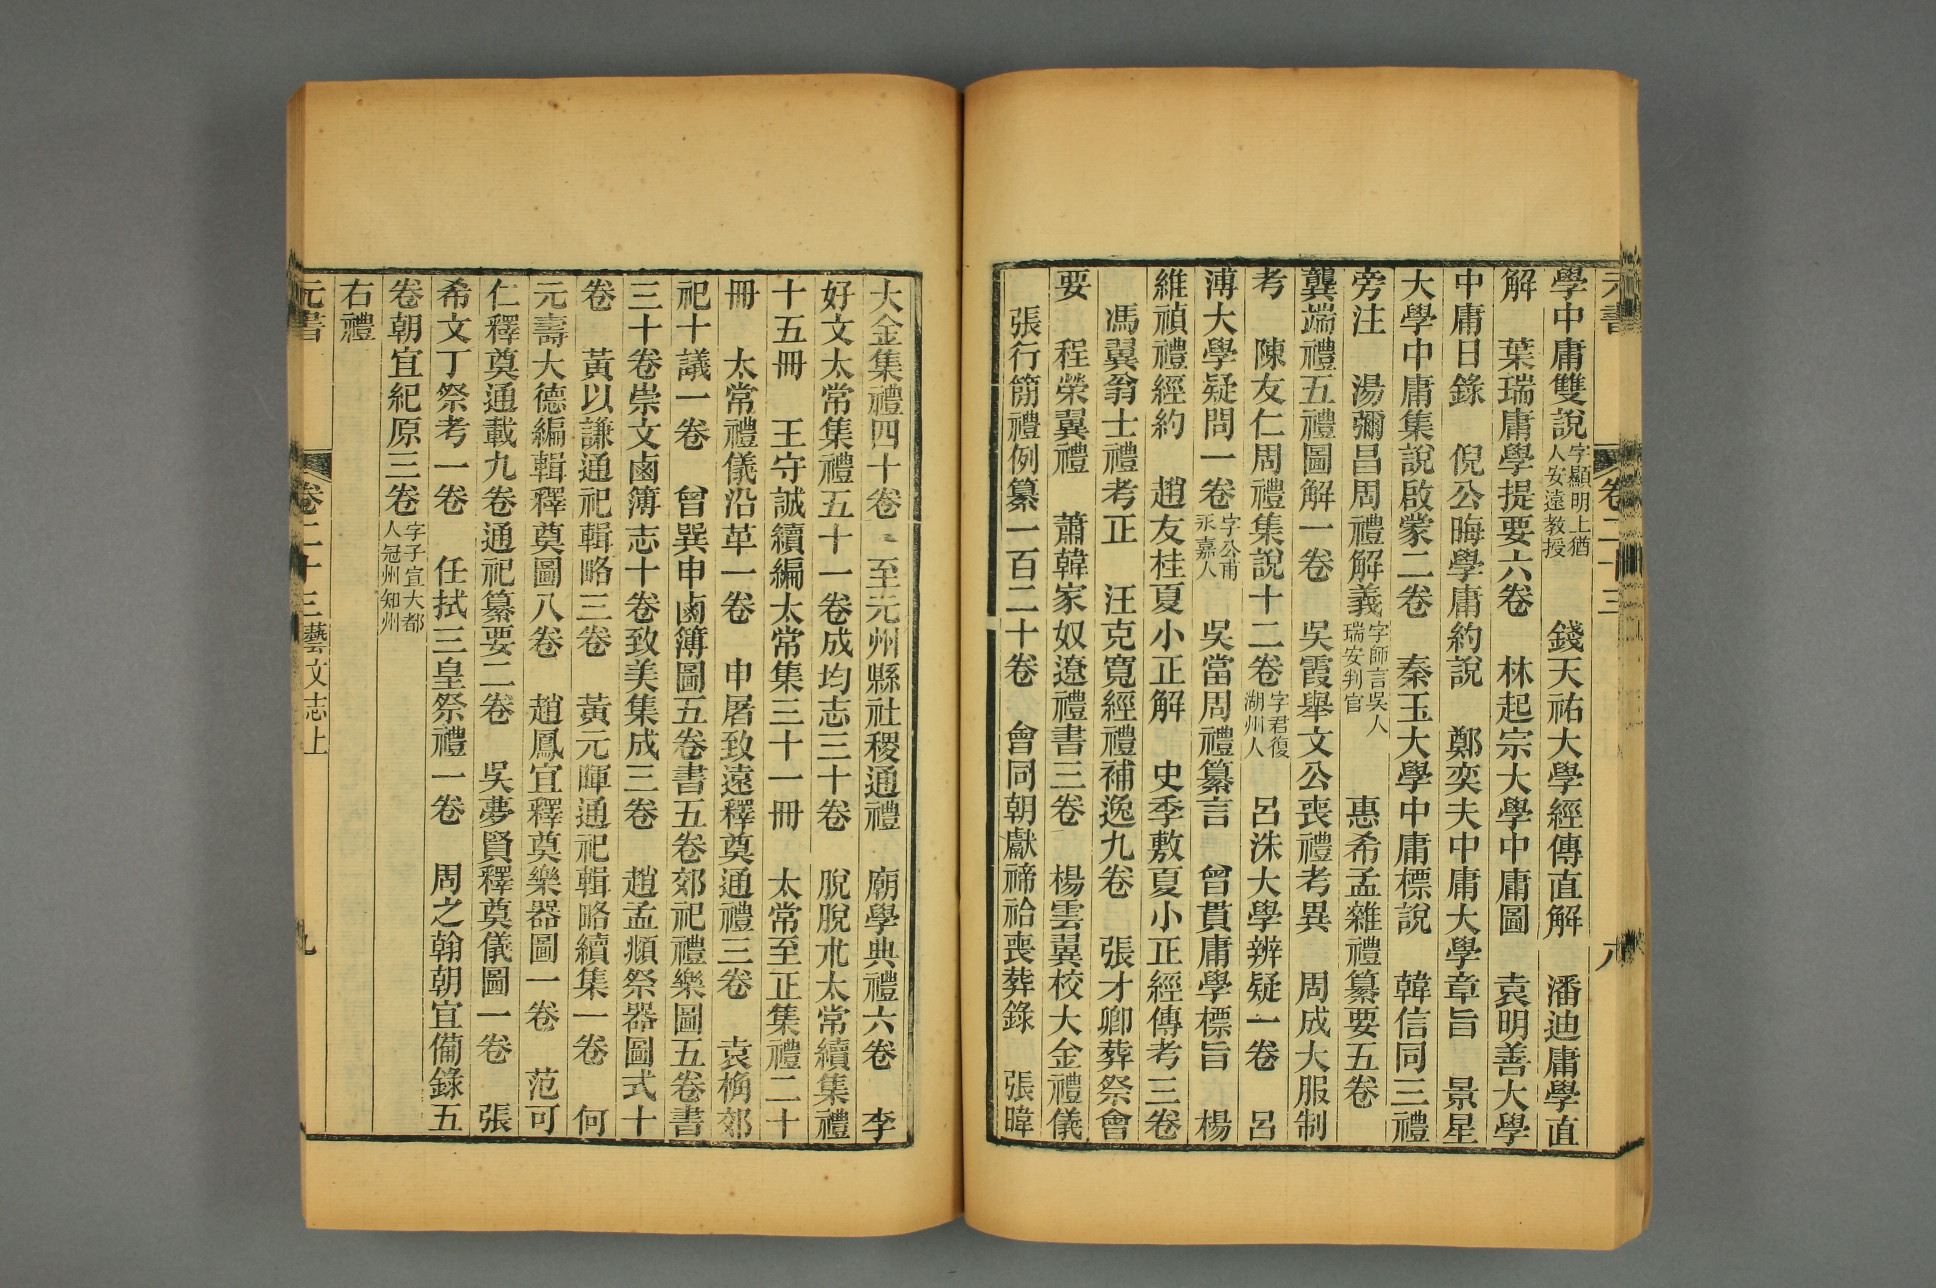 元書 卷二十三 八
學中庸雙說字顯明上猶人安遠教授 錢天祐大學經傳直解 潘迪庸學直
解 葉瑞庸學提要六卷 林起宗大學中庸圖 袁明善大學
中庸日錄 倪公晦學庸約說 鄭奕夫中庸大學章旨 景星
大學中庸集說啟蒙二卷 秦玉大學中庸標說 韓信同三禮
旁注 湯彌昌周禮解義字師言吳人瑞安判官 惠希孟雜禮纂要五卷
龔端禮五禮圖解一卷 吳霞舉文公喪禮考異 周成大服制
考 陳友仁周禮集說十二卷字君復湖州人 呂洙大學辨疑一卷 呂
溥大學疑問一卷字公甫永嘉人 吳當周禮纂言 曾貫庸學標旨 楊
維禎禮經約 趙友桂夏小正解 史季敷夏小正經傳考三卷
馮翼翁士禮考正 汪克寬經禮補逸九卷 張才卿葬祭會
要 程榮翼禮 蕭韓家奴遼禮書三卷 楊雲翼校大金禮儀
張行簡禮例纂一百二十卷 會同朝獻禘祫喪葬錄 張暐
大金集禮四十卷 至元州縣社稷通禮 廟學典禮六卷 李
好文太常集禮五十一卷成均志三十卷 脫脫朮太常續集禮
十五冊 王守誠續編太常集三十一冊 太常至正集禮二十
冊 太常禮儀沿革一卷 申屠致遠釋奠通禮三卷 袁桷郊
祀十議一卷 曾巽申鹵簿圖五卷書五卷郊祀禮樂圖五卷書
三十卷崇文鹵簿志十卷致美集成三卷 趙孟頫祭器圖式十
卷 黃以謙通祀輯略三卷 黃元暉通祀輯略續集一卷 何
元壽大德編輯釋奠圖八卷 趙鳳宜釋奠樂器圖一卷 范可
仁釋奠通載九卷通祀纂要二卷 吳夢賢釋奠儀圖一卷 張
希文丁祭考一卷 任拭三皇祭禮一卷 周之翰朝宜備錄五
卷朝宜紀原三卷字子宣大都人冠州知州
右禮
元書 卷二十三藝文志上 九